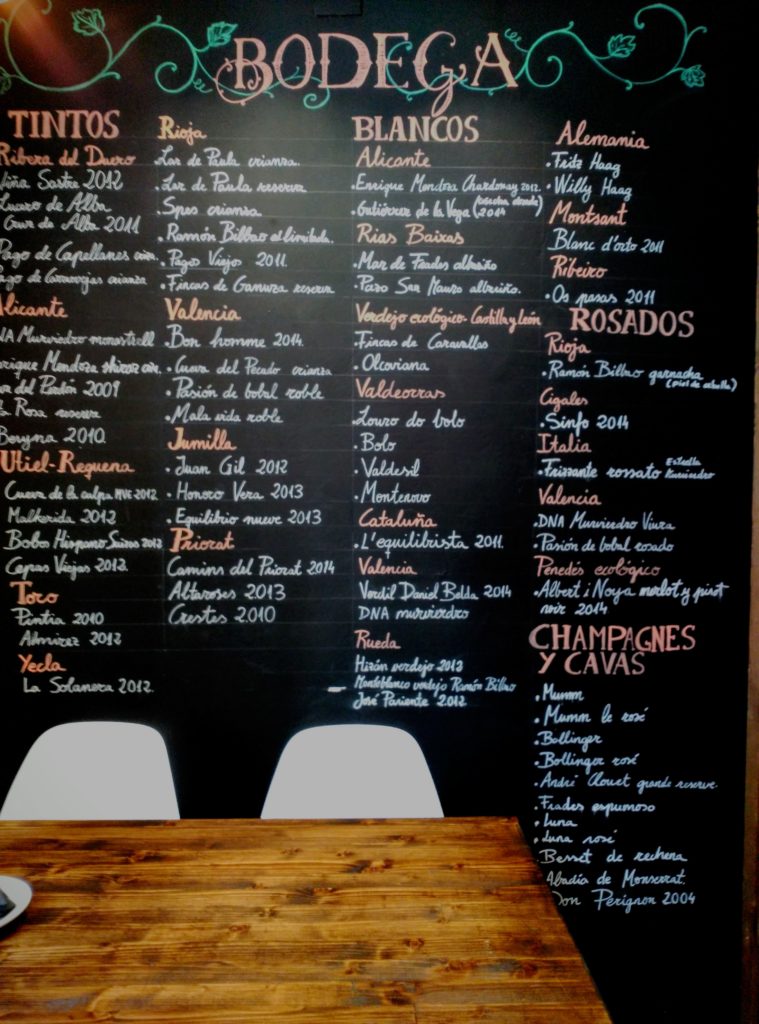 BODEGA
TINTOS
Ribera del Duero
Viña Sastre 2012
Lucero de Alba
Cruz de Alba 2011
Pago de Capellanes
Pago de Carraovejas crianza
Alicante
DNA Murviedro monastrell
Enrique Mendoza shiraz
del 2009
Rosa reserva
Beryna 2010
Utiel-Requena
Cueva de la culpa 2012
Malkerida 2012
Bobos Hispano Suizas 2012
Cepas Viejas 2012
Toro
Pintia 2010
Admirez 2012
Yecla
La Solanera 2012
Rioja
.Lar de Paula crianza
.Lar de Paula reserva
Spes crianza
.Ramón Bilbao ed limitada.
.Pago Viejos 2011.
.Fincas de Ganuza reserva
Valencia
.Bon homme 2014
.Cueva del Pecado crianza
.Pasión de bobal roble
.Mala vida roble
Jumilla
.Juan Gil 2012
.Honoro Vera 2013
.Equilibrio nueve 2013
Priorat
Camins del Priorat 2014
Altaroses 2013
Crestes 2010
BLANCOS
Alicante
.Enrique Mendoza Chardonay 2012.
.Gutiérrez de la Vega ( 2014)
Rias Baixas
.Mar de Frades albariño
.Pazo San Mauro albariño.
Verdejo ecológico- Castilla y León
.Fincas de
.Olcaviana
Valdeorras
.Louro do bolo
.Bolo
.Valdesil
.Montenovo
Cataluña
.L'equilibrista 2011.
Valencia
.Verdil Daniel Belda 2014
DNA murviedro
Rueda
Hizón verdejo 2012
Monteblanco verdejo Ramón Bilbao
José Pariente 2012
Alemania
.Fritz Haag
.Willy Haag
Montsant
Blanc d'orto 2011
Ribeiro
.Os pasas 2011
ROSADOS
Rioja
.Ramón Bilbao garnacha
(piel de cebolla)
Cigales
.Sinfo 2014
Italia
.Frizzante rossato Estrella
Murviedro
Valencia
.DNA Murviedro Viura
.Pasión de bobal rosado
Penedés ecológico
.Albert i Noya merlot y pinot
noir 2014
CHAMPAGNES
Y CAVAS
.Mumm
.Mumm le rosé
.Bollinger
.Bollinger rosé
.André Clouet grande reserve.
.Frades espumoso
.Luna
.Luna rosé
Besset de rechena
Abadía de Monserrat.
Don Perignon 2004